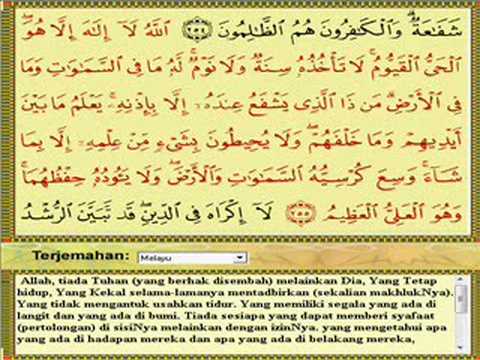 شَفَـٰعَةٌ ۗ وَٱلْكَـٰفِرُونَ هُمُ ٱلظَّـٰلِمُونَ ﴿٢٥٤﴾ ٱللَّهُ لَآ إِلَـٰهَ إِلَّا هُوَ
ٱلْحَىُّ ٱلْقَيُّومُ ۚ لَا تَأْخُذُهُۥ سِنَةٌ وَلَا نَوْمٌ ۚ لَّهُۥ مَا فِى ٱلسَّمَـٰوَٰتِ وَمَا
فِى ٱلْأَرْضِ ۗ مَن ذَا ٱلَّذِى يَشْفَعُ عِندَهُۥٓ إِلَّا بِإِذْنِهِۦ ۚ يَعْلَمُ مَا بَيْنَ
أَيْدِيهِمْ وَمَا خَلْفَهُمْ ۖ وَلَا يُحِيطُونَ بِشَىْءٍ مِّنْ عِلْمِهِۦٓ إِلَّا بِمَا
شَآءَ ۚ وَسِعَ كُرْسِيُّهُ ٱلسَّمَـٰوَٰتِ وَٱلْأَرْضَ ۖ وَلَا يَـُٔودُهُۥ حِفْظُهُمَا ۚ
وَهُوَ ٱلْعَلِىُّ ٱلْعَظِيمُ ﴿٢٥٥﴾ لَآ إِكْرَاهَ فِى ٱلدِّينِ ۖ قَد تَّبَيَّنَ ٱلرُّشْدُ
Terjemahan: Melayu
Allah, tiada Tuhan (yang berhak disembah) melainkan Dia, Yang Tetap
hidup, Yang Kekal selama-lamanya mentadbirkan (sekalian makhlukNya).
Yang tidak mengantuk usahkan tidur. Yang memiliki segala yang ada di
langit dan yang ada di bumi. Tiada sesiapa yang dapat memberi syafaat
(pertolongan) di sisiNya melainkan dengan izinNya. yang mengetahui apa
yang ada di hadapan mereka dan apa yang ada di belakang mereka,